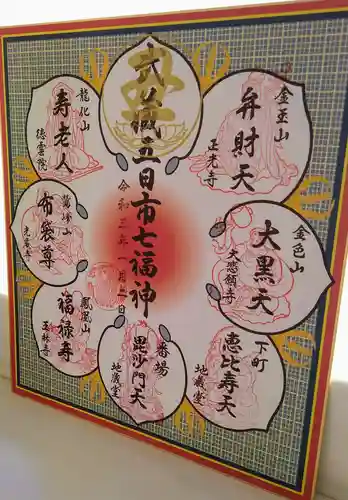 武蔵五日市七福神
令和三年一月
金玉山
弁財天
正光寺
金色山
大黒天
大悲願寺
下町
恵比寿天
地蔵堂
番場
毘沙門天
地蔵堂
鳳凰山
福禄寿
玉林寺
布袋尊
光厳寺
龍化山
寿老人
徳雲院